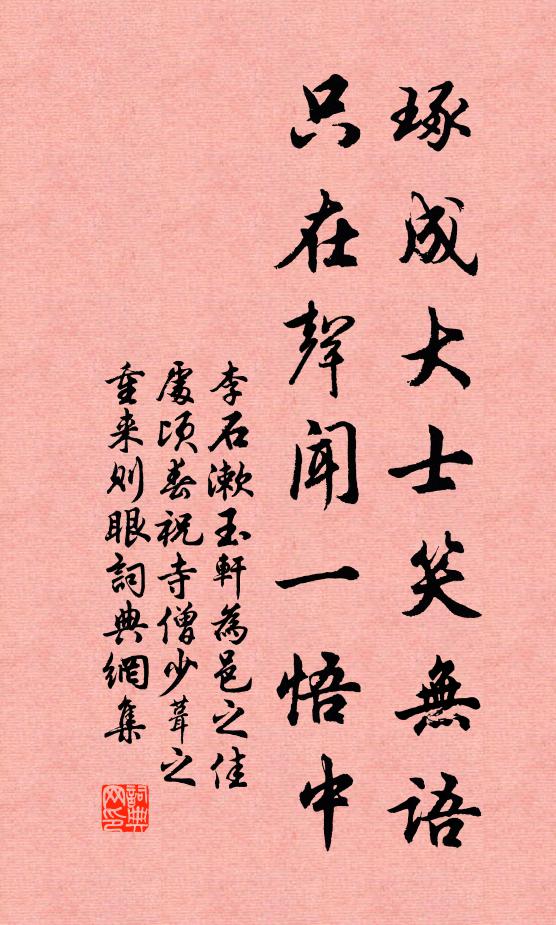 琢成大士笑無語
只在聲聞一悟中
李石漱玉軒為邑之佳
處頃春祝寺僧少葺之
重来则眼詞典網集
詞典网印